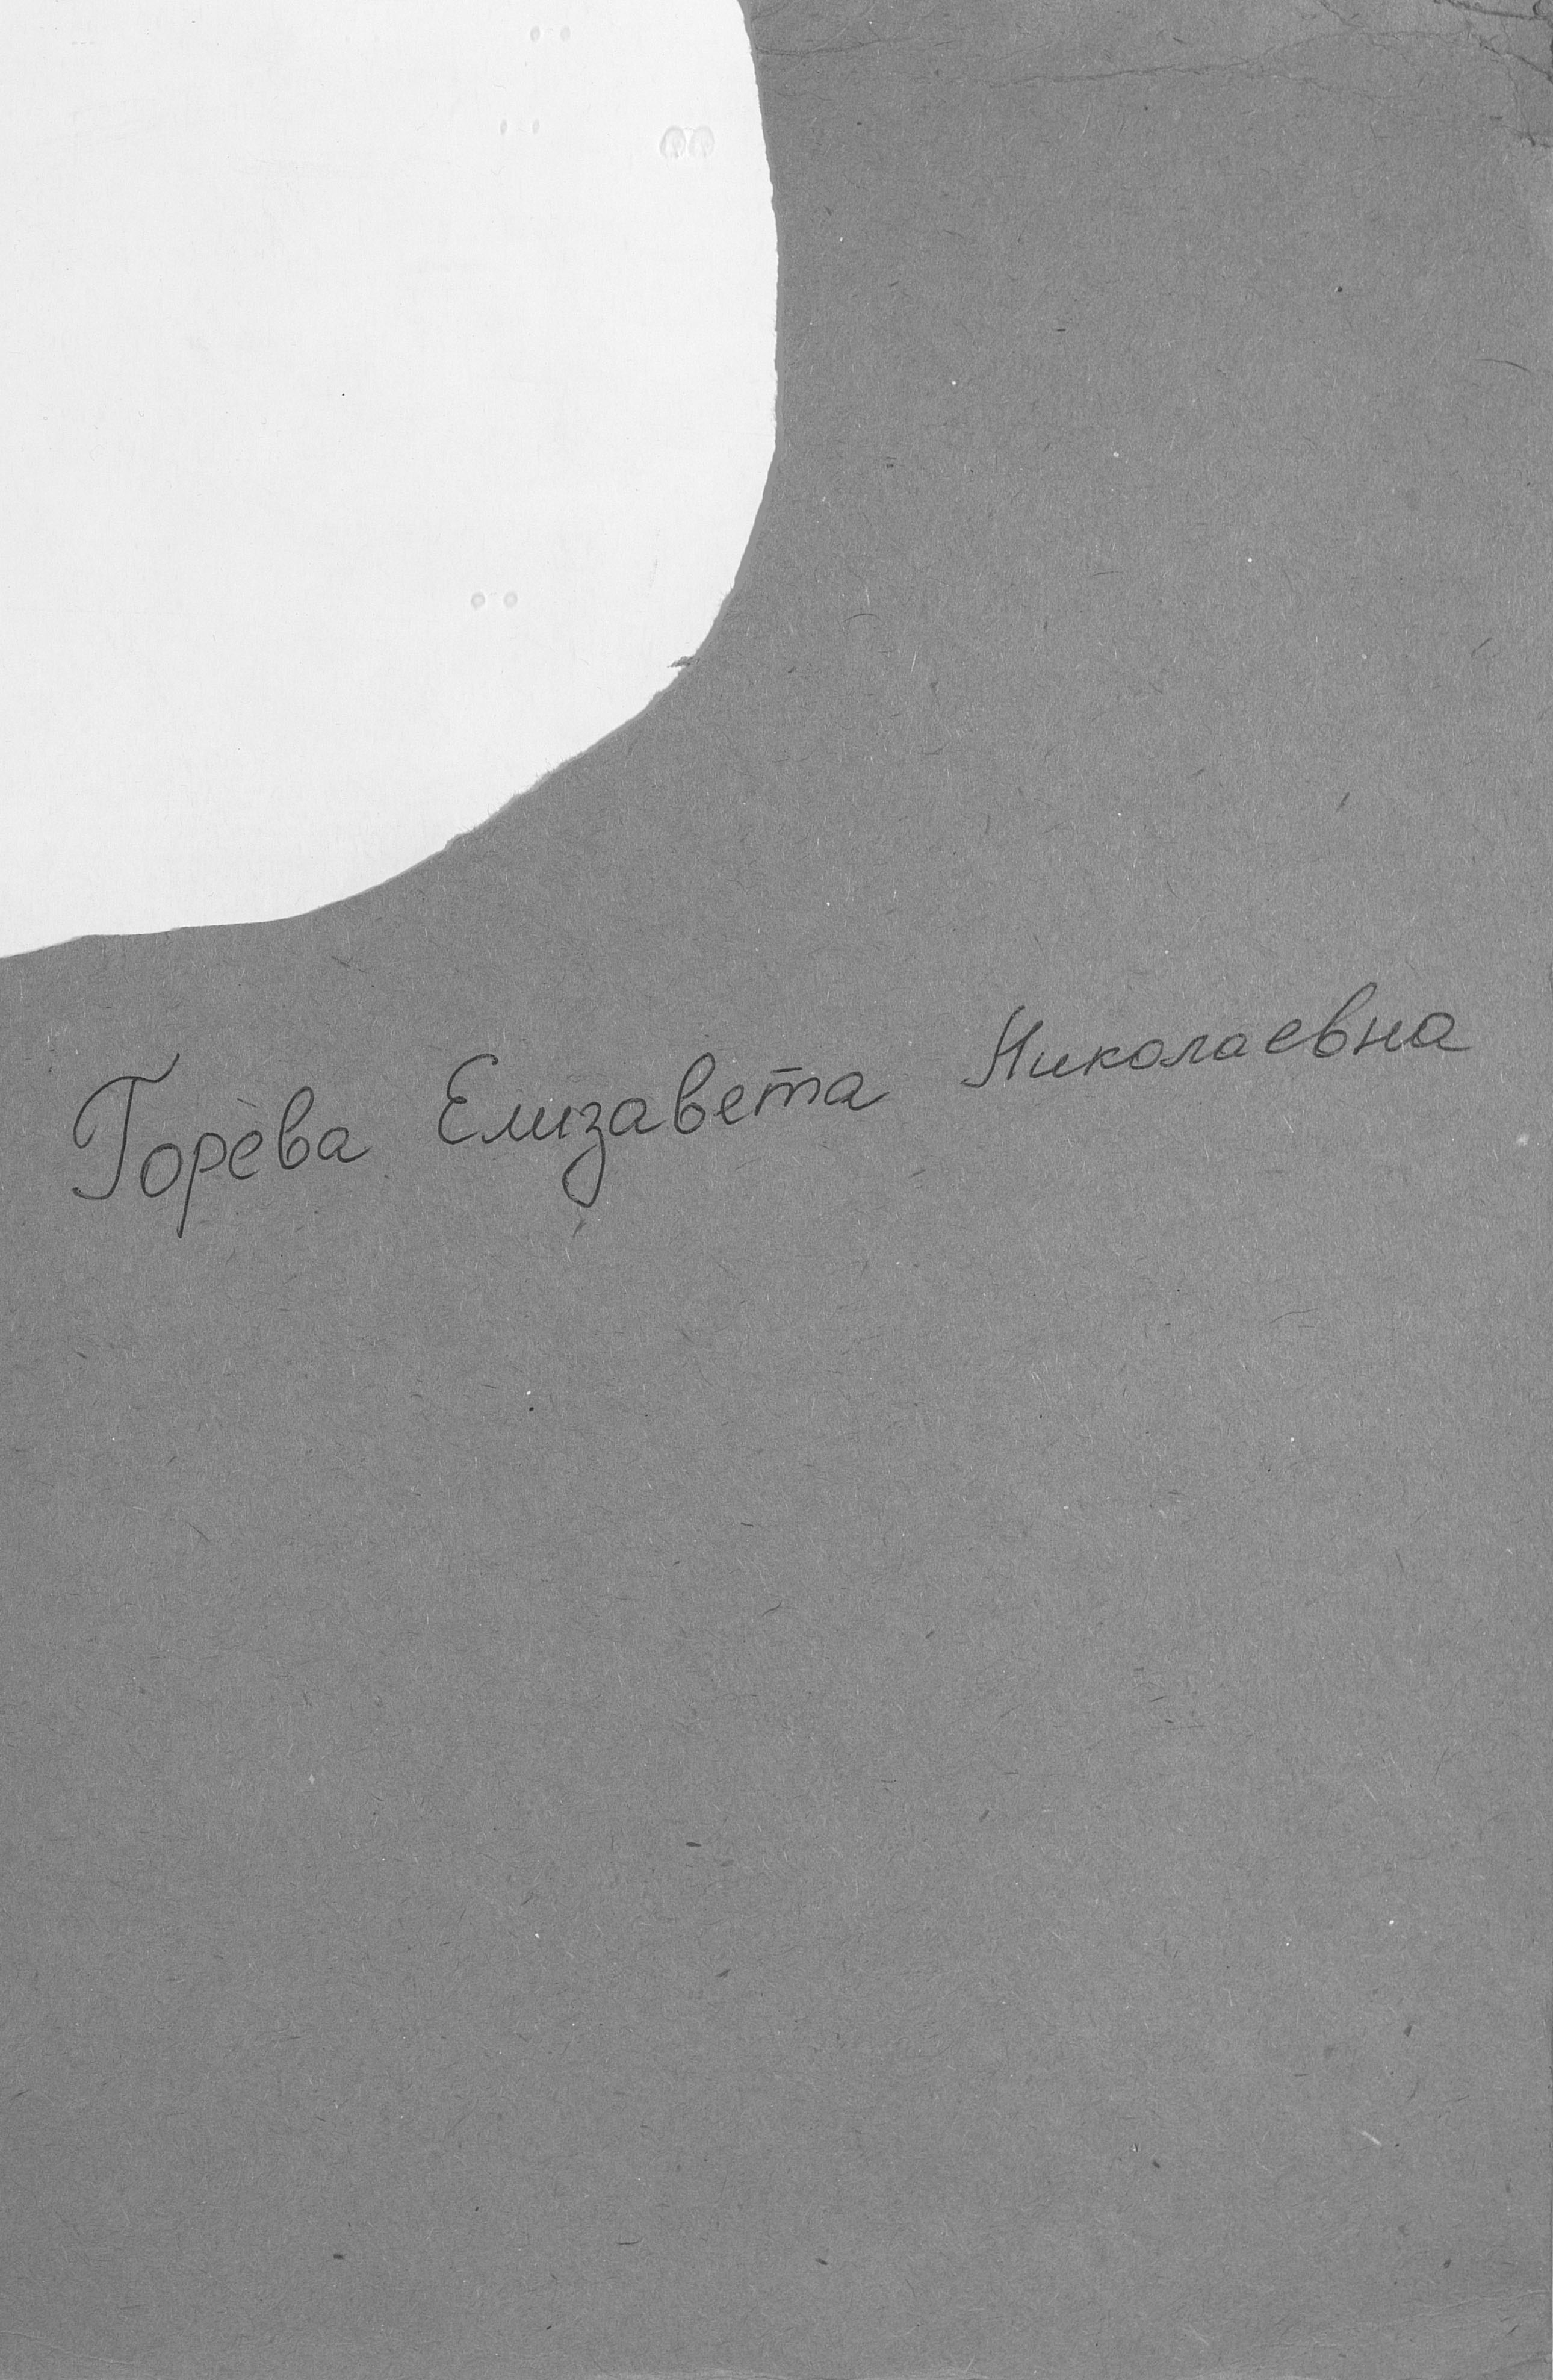 Горева Елизавета Николаевна